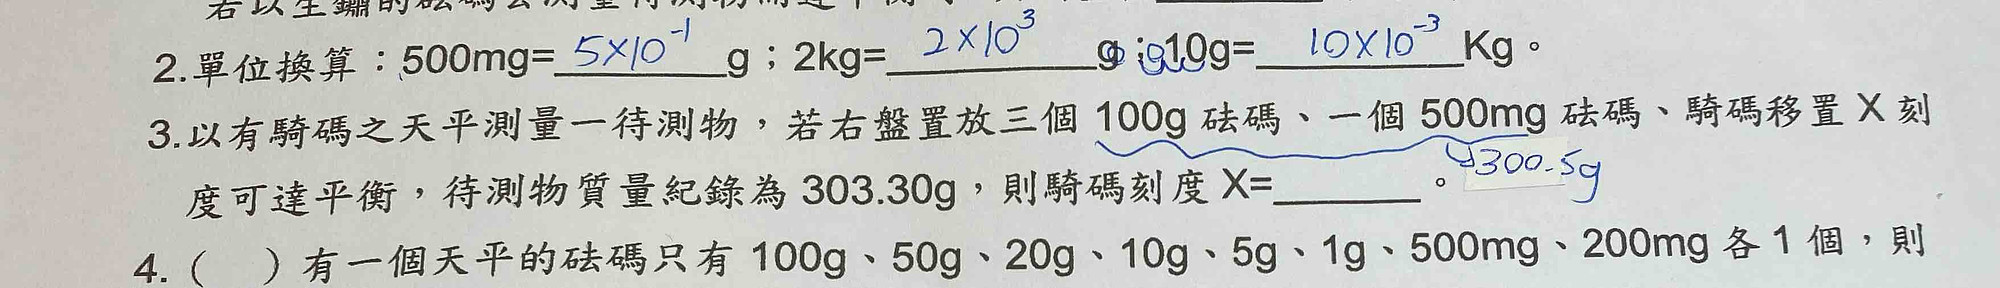 2.單位換算：500mg=5×10⁻¹g；2kg=2×10³g；10g=10×10⁻³Kg。
3.以有騎碼之天平測量一待測物，若右盤置放三個100g砝碼、一個500mg砝碼、騎碼移置X刻
300.5g
度可達平衡，待測物質量紀錄為303.30g，則騎碼刻度X=______。
4.（　）有一個天平的砝碼只有100g、50g、20g、10g、5g、1g、500mg、200mg各1個，則